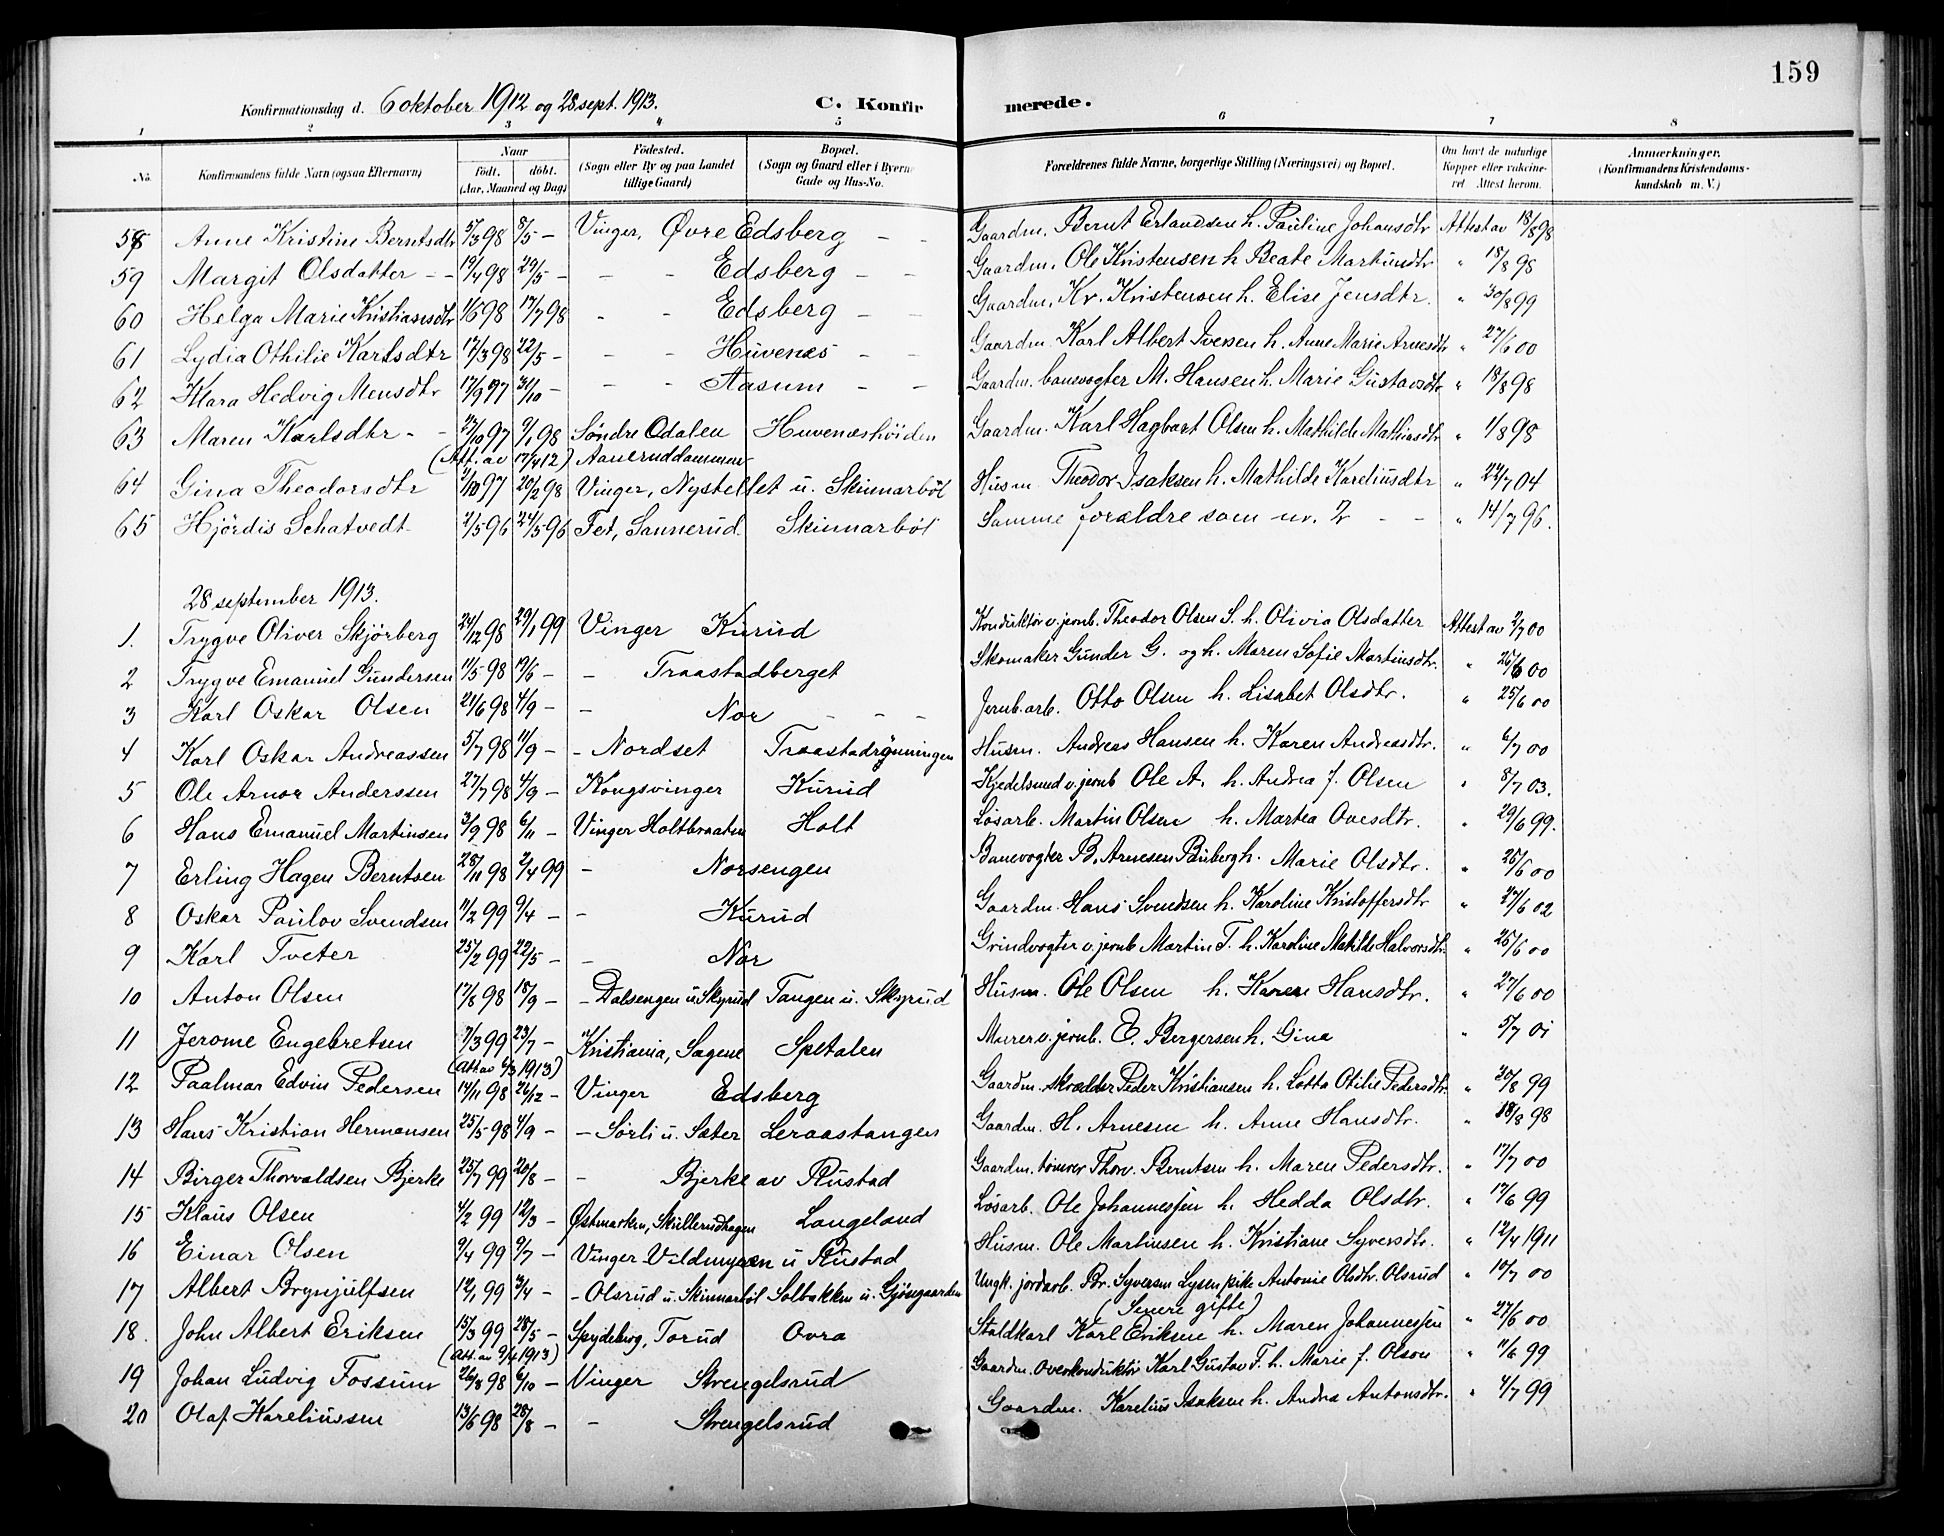 159
Konfirmationsdag d. 6 oktober 1912 og 28 sept. 1913. C. Konfirmerede.
1 2 3 4 5 6 7 8
No. Konfirmandens fulde Navn (ogsaa Efternavn) Naar födt. döbt. (Aar, Maaned og Dag) Födested. (Sogn eller By og paa Landet tillige Gaard) Bopæl. (Sogn og Gaard eller i Byerne Gade og Hus-No. Forældrenes fulde Navne, borgerlige Stilling (Næringsvei) og Bopæl. Om havt de naturlige Kopper eller vakcineret Attest herom. Anmærkninger. (Konfirmandens Kristendomskundskab m. V.)
58 Anne Kristine Berntsdtr 5/3 98 8/5 — Vinger, Øvre Edsberg — — Gaardm. Bernt Erlandsen h. Pauline Johansdtr Attest av 18/8 98
59 Margit Olsdatter - - 19/4 98 29/5 — - - Edsberg — — Gaardm. Ole Kristensen h. Beate Martinsdtr " 18/8 98
60 Helga Marie Kristiansdtr 1/6 98 17/7 98 - - Edsberg — — Gaardm. Kr. Kristensen h. Elise Jensdtr. " 30/8 99
61 Lydia Othilie Karlsdtr 17/3 98 22/5 — - - Huvenæs — — Gaardm. Karl Albert Iversen h. Anne Marie Arnesdtr " 27/6 00
62 Klara Hedvig Mensdtr 17/9 97 31/10 — - - Aasum — — Gaardm. banevogter M. Hansen h. Marie Gustavsdtr " 18/8 98
63 Maren Karlsdtr - - 27/10 97 9/1 98 Søndre Odalen Huvenæshöiden Gaardm. Karl Hagbart Olsen h. Mathilde Mathiasdtr " 1/8 98
(Att. av 17/4 12) Aaneruddammen
64 Gina Theodorsdtr 3/10 97 20/2 98 Vinger, Nystellet u. Skinnarböl Husm. Theodor Isaksen h. Mathilde Kareliusdtr " 22/7 04
65 Hjördis Schatvedt 2/5 96 24/5 96 Fet, Sannerud. Skinnarböl Samme forældre som nr. 2 - - " 14/7 96.
28 september 1913.
1. Trygve Oliver Skjörberg 24/12 98 29/1 99 Vinger Kurud Konduktör v. jernb. Theodor Olsen S. h. Olivia Olsdatter Attest av 2/7 00
2 Trygve Emanuel Gundersen 11/5 98 19/6 — - Traastadberget Skomaker Gunder G. og h. Maren Sofie Martinsdtr. " 26/6 00
3 Karl Oskar Olsen 21/6 98 4/9 — - Nor - - - Jernb. arb. Otto Olsen h. Lisabet Olsdtr. " 25/6 00
4 Karl Oskar Andreassen 5/7 98 11/9 — - Nordset Traastadrynningen Husm. Andreas Hansen h. Karen Andreasdtr. " 6/7 00
5 Ole Arnor Anderssen 27/7 98 4/9 — Kongsvinger Kurud Kjedelsmed v. jernb Ole A. h. Andrea f. Olsen " 8/7 03.
6 Hans Emanuel Martinsen 3/9 98 6/11 — Vinger Holtbraaten Holt Løsarb. Martin Olsen h. Martea Ovesdtr. " 29/6 99.
7 Erling Hagen Berntsen 28/11 98 2/4 99 - Norsengen Banevogter B. Arnesen Buberg h. Marie Olsdtr. " 25/6 00
8 Oskar Paulov Svendsen 11/2 99 9/4 — - Kurud Gaardm. Hans Svendsen h. Karoline Kristoffersdtr " 27/6 02
9 Karl Tveter 25/2 99 22/5 — - Nor Grindvogter v. jernb Martin T. h. Karoline Matilde Halvorsdtr. " 25/6 00
10 Anton Olsen 17/8 98 18/9 — - Dalsengen u. Skyrud Tangen u. Skyrud Husm. Ole Olsen h. Karen Hansdtr. " 27/6 00
11 Jerome Engebretsen 7/3 99 23/7 — Kristiania, Sagene Spetalen Murer v. jernb. E. Bergersen h. Gina " 5/7 01
(Att av 6/3 1913)
12 Paalmar Edvin Pedersen 14/11 98 26/12 — Vinger Edsberg Gaardm. skrædder Peder Kristiansen h. Lotta Otilie Pedersdtr. " 20/8 99
13 Hans Kristian Hermansen 25/5 98 4/9 — - Sørli u. Sæter Leraastangen Gaardm. H. Arnesen h. Anne Hansdtr. " 18/8 98
14 Birger Thorvaldsen Bjerke 25/7 99 20/8 — - Bjerke av Rustad Gaardm. tömrer Thorv. Berntsen h. Maren Pedersdtr. " 17/7 00
15 Klaus Olsen 4/2 99 12/3 — Østmarken, Skullerudhagen Langeland Løsarb. Ole Johannessen h. Hedda Olsdtr. " 17/6 99
16 Einar Olsen 9/4 99 9/7 — Vinger Vildmyren u Rustad Husm. Ole Martinsen h. Kristiane Syversdtr. " 12/4 1911
17 Albert Brynjulfsen 12/1 99 3/4 — - Olsrud u. Skinnarböl Solbakken u. Gjöngaarden Ungk. jordarb. Br. Syversen Lysen pike Antonie Olsdtr. Olsrud " 10/7 00
(Senere gifte)
18. John Albert Eriksen 15/3 99 28/5 — Spydeberg, Torud Ovra Staldkarl Karl Eriksen h. Maren Johannessen " 27/6 00
(Att. av 9/4 1913)
19 Johan Ludvig Fossum 26/8 98 6/10 — Vinger Strengelsrud Gaardm. Overkonduktör Karl Gustav F. h. Marie f. Olson " 11/6 99
20 Olaf Kareliussen 13/6 98 28/8 — - Strengelsrud Gaardm. Karelius Isaksen h. Andra Antonsdtr. " 4/7 99